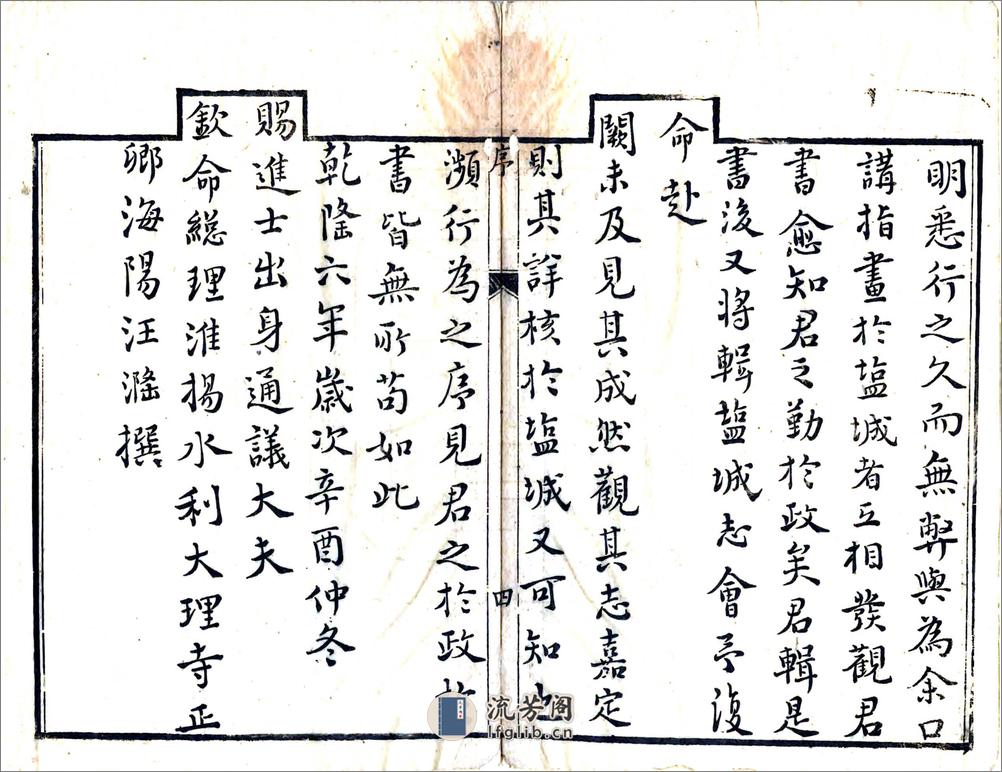 明悉行之久而無弊與為余口
講指畫於塩城者互相發觀君
書愈知君之勤於政矣君輯是
書後又將輯塩城志會予復
命赴
闕未及見其成然觀其志嘉定
則其詳核於塩城又可知也
序
四
瀕行為之序見君之於政於
書皆無所苟如此
乾隆六年歲次辛酉仲冬
賜進士出身通議大夫
欽命總理淮揚水利大理寺正
卿海陽汪漋撰
流芳阁
lfglib.cn